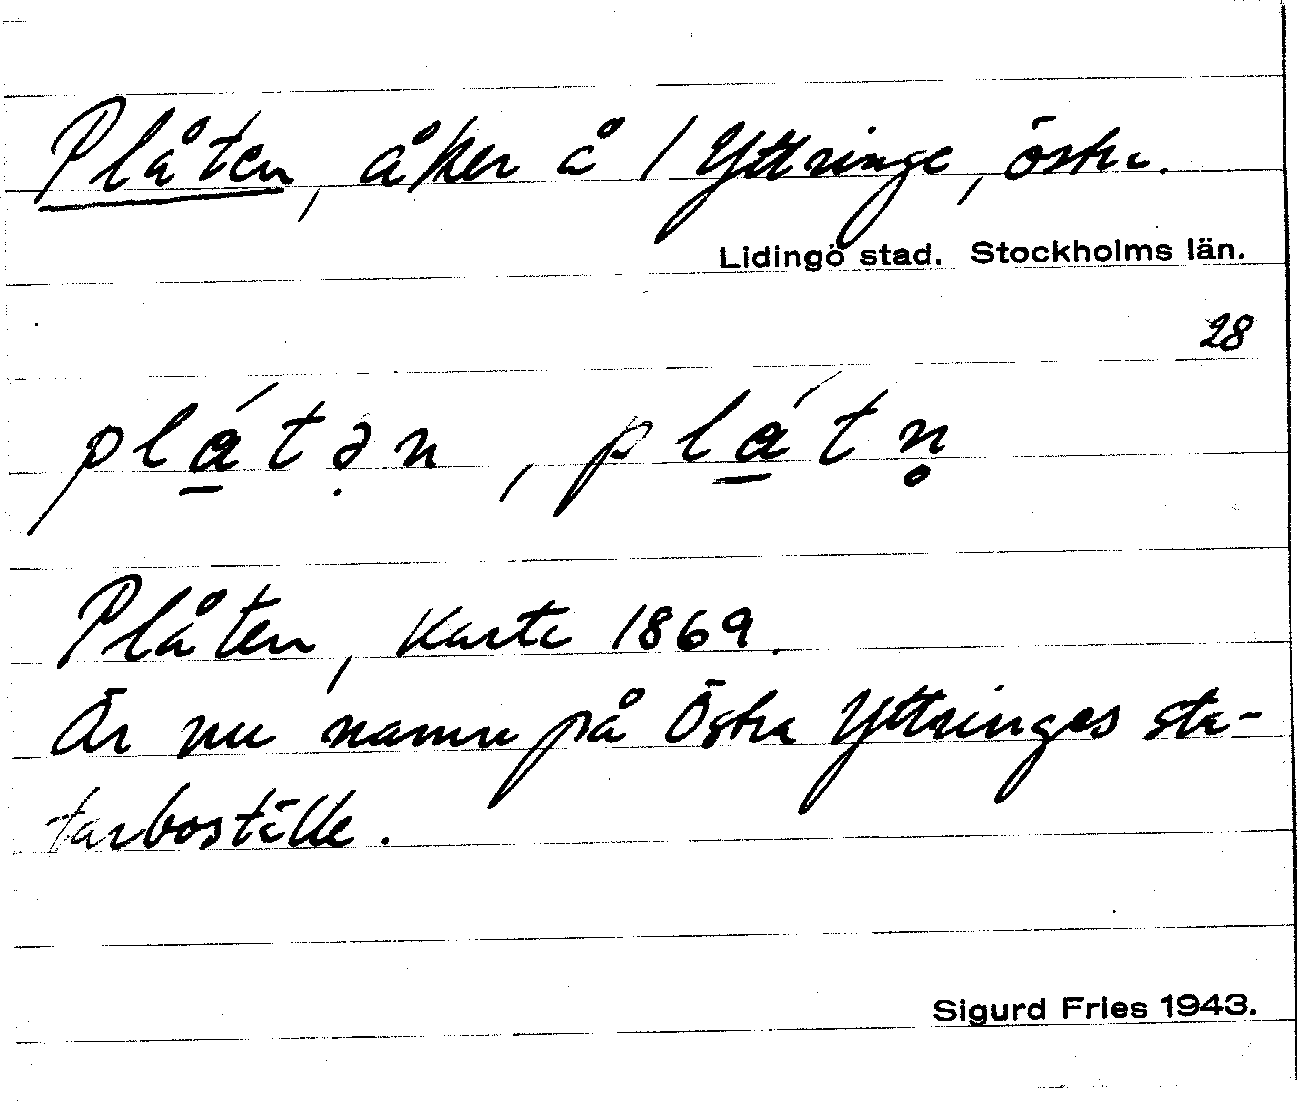 Plåten, åker å 1 Yttringe, östra.
Lidingö stad. Stockholms län.
28
plá̲tə̣n, plá̲tn̥
Plåten, Karta 1869.
Är nu namn på Östra Yttringes sta-
tarboställe.
Sigurd Fries 1943.